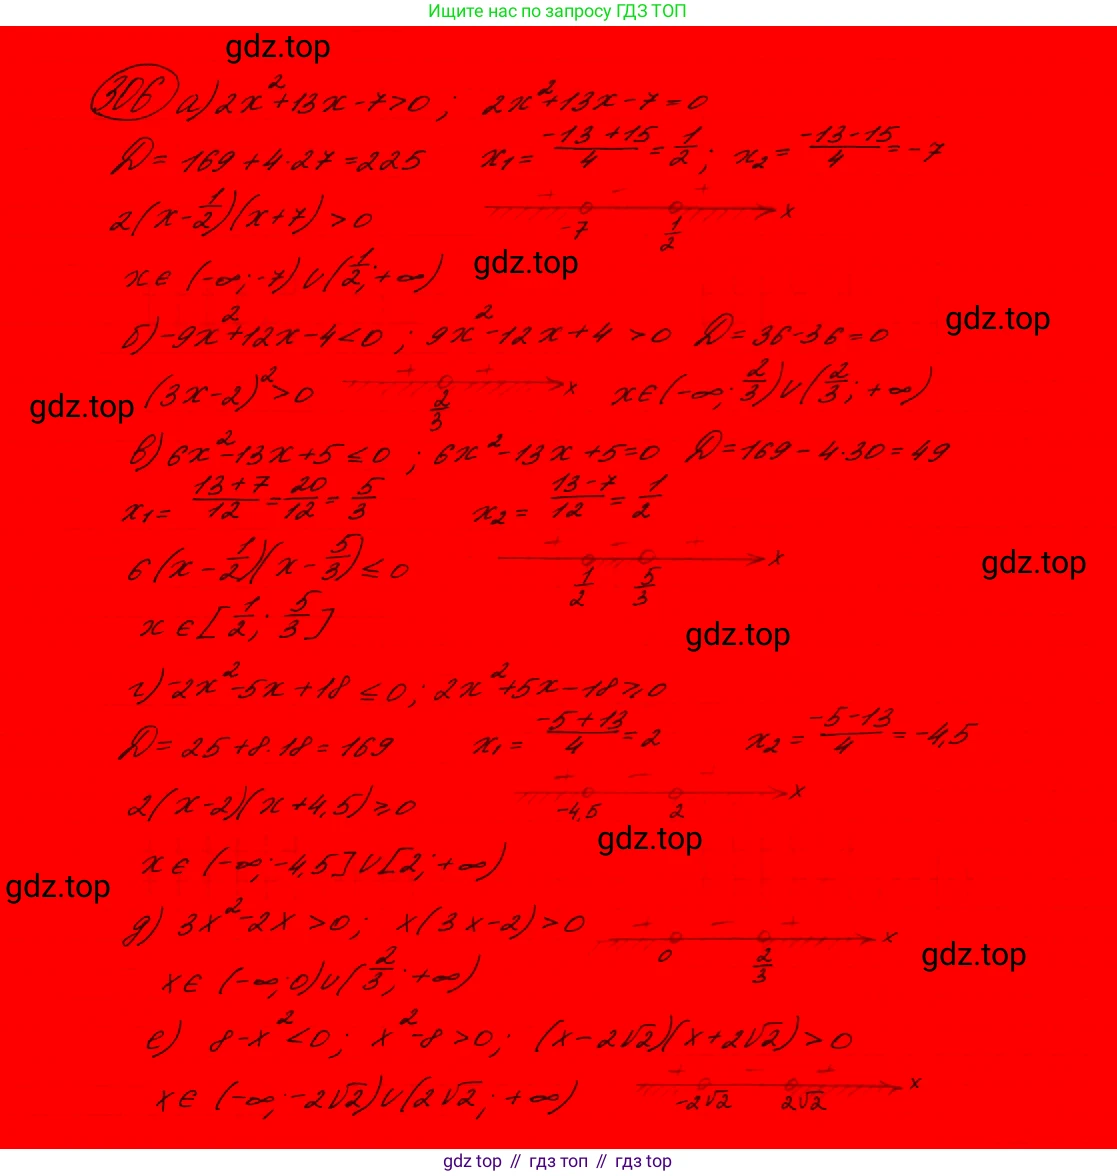 Ищите нас по запросу ГДЗ ТОП
gdz.top
306 а) 2x²+13x-7>0 ; 2x²+13x-7=0
D= 169+4·27=225 x₁= (-13+15)/4 = 1/2 ; x₂= (-13-15)/4 = -7
2(x-1/2)(x+7)>0 + - + x
-7 1/2
x∈ (-∞;-7)∪(1/2;+∞) gdz.top
gdz.top
б) -9x²+12x-4<0 ; 9x²-12x+4>0 D=36-36=0
(3x-2)²>0 + + x x∈(-∞;2/3)∪(2/3;+∞)
gdz.top 2/3
в) 6x²-13x+5≤0 ; 6x²-13x+5=0 D=169-4·30=49
x₁= (13+7)/12 = 20/12 = 5/3 x₂= (13-7)/12 = 1/2
6(x-1/2)(x-5/3)≤0 + - + x
1/2 5/3 gdz.top
x∈[1/2; 5/3] gdz.top
г) -2x²-5x+18≤0; 2x²+5x-18≥0
D= 25+8·18=169 x₁= (-5+13)/4 = 2 x₂= (-5-13)/4 = -4,5
2(x-2)(x+4,5)≥0 + - - x
-4,5 2
gdz.top
x∈ (-∞;-4,5]∪[2;+∞)
gdz.top
д) 3x²-2x>0; x(3x-2)>0 + - + x
0 2/3 gdz.top
x∈ (-∞;0)∪(2/3;+∞)
е) 8-x²<0; x²-8>0; (x-2√2)(x+2√2)>0
x∈ (-∞;-2√2)∪(2√2;+∞) + - + x
-2√2 2√2
gdz.top // гдз топ // гдз top